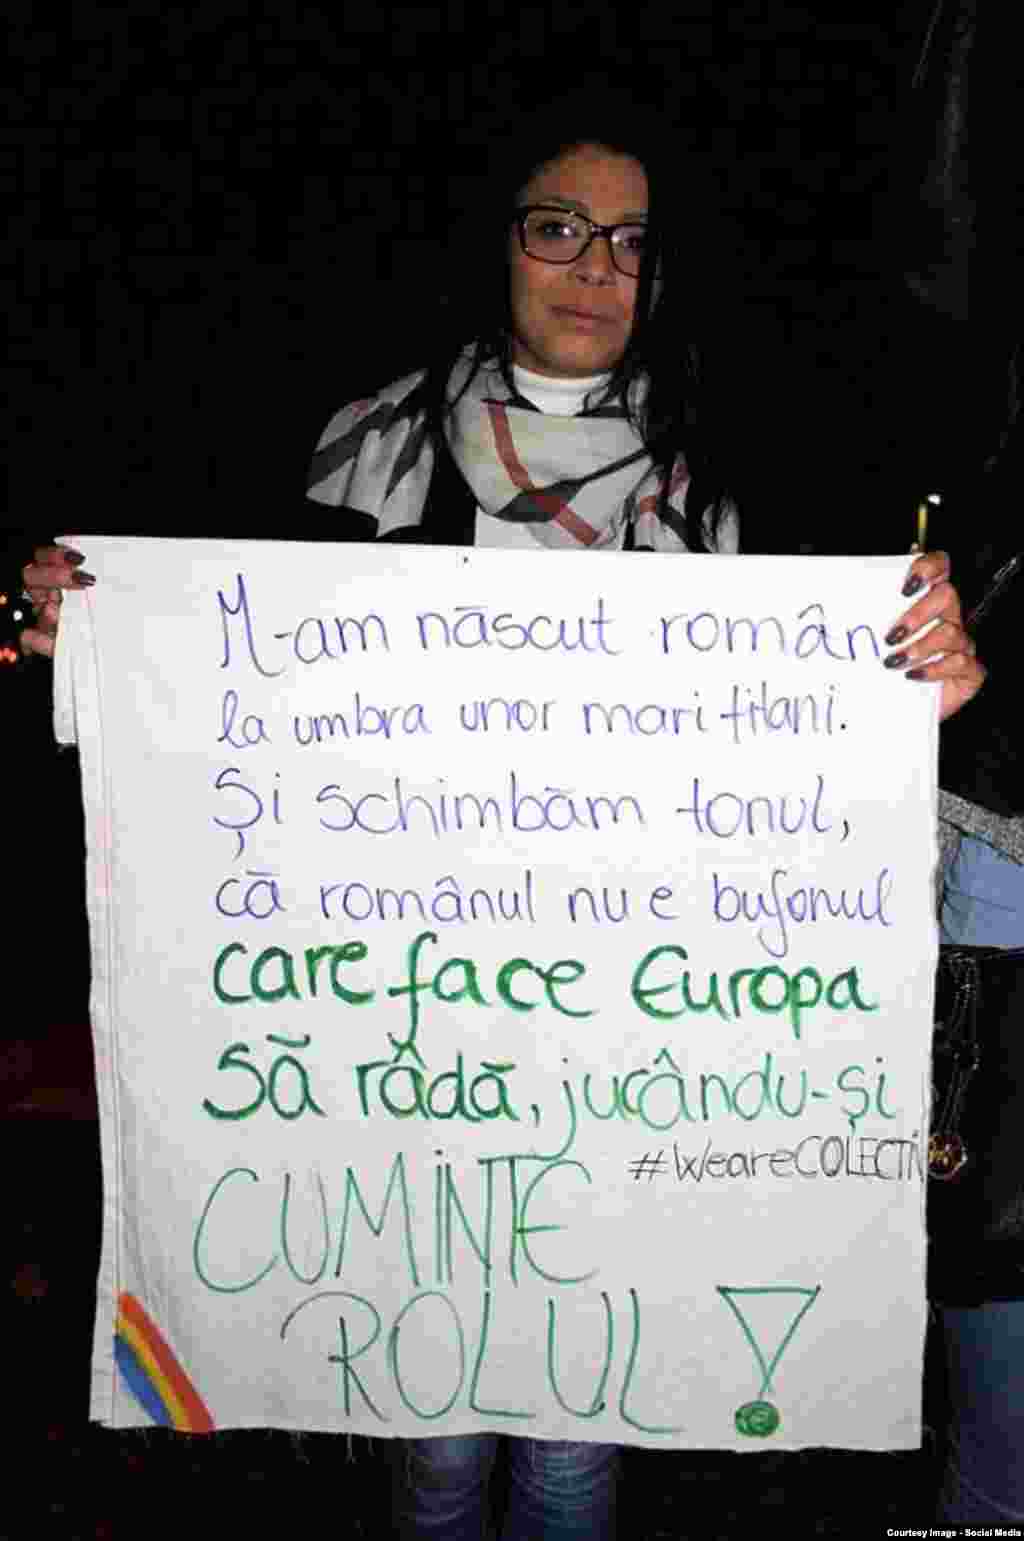 M-am născut român
la umbra unor mari titani.
Și schimbăm tonul,
că românul nu e bufonul
care face Europa
să râdă, jucându-și
#WeareCOLECTIV
CUMINTE
ROLUL!
Courtesy Image - Social Media